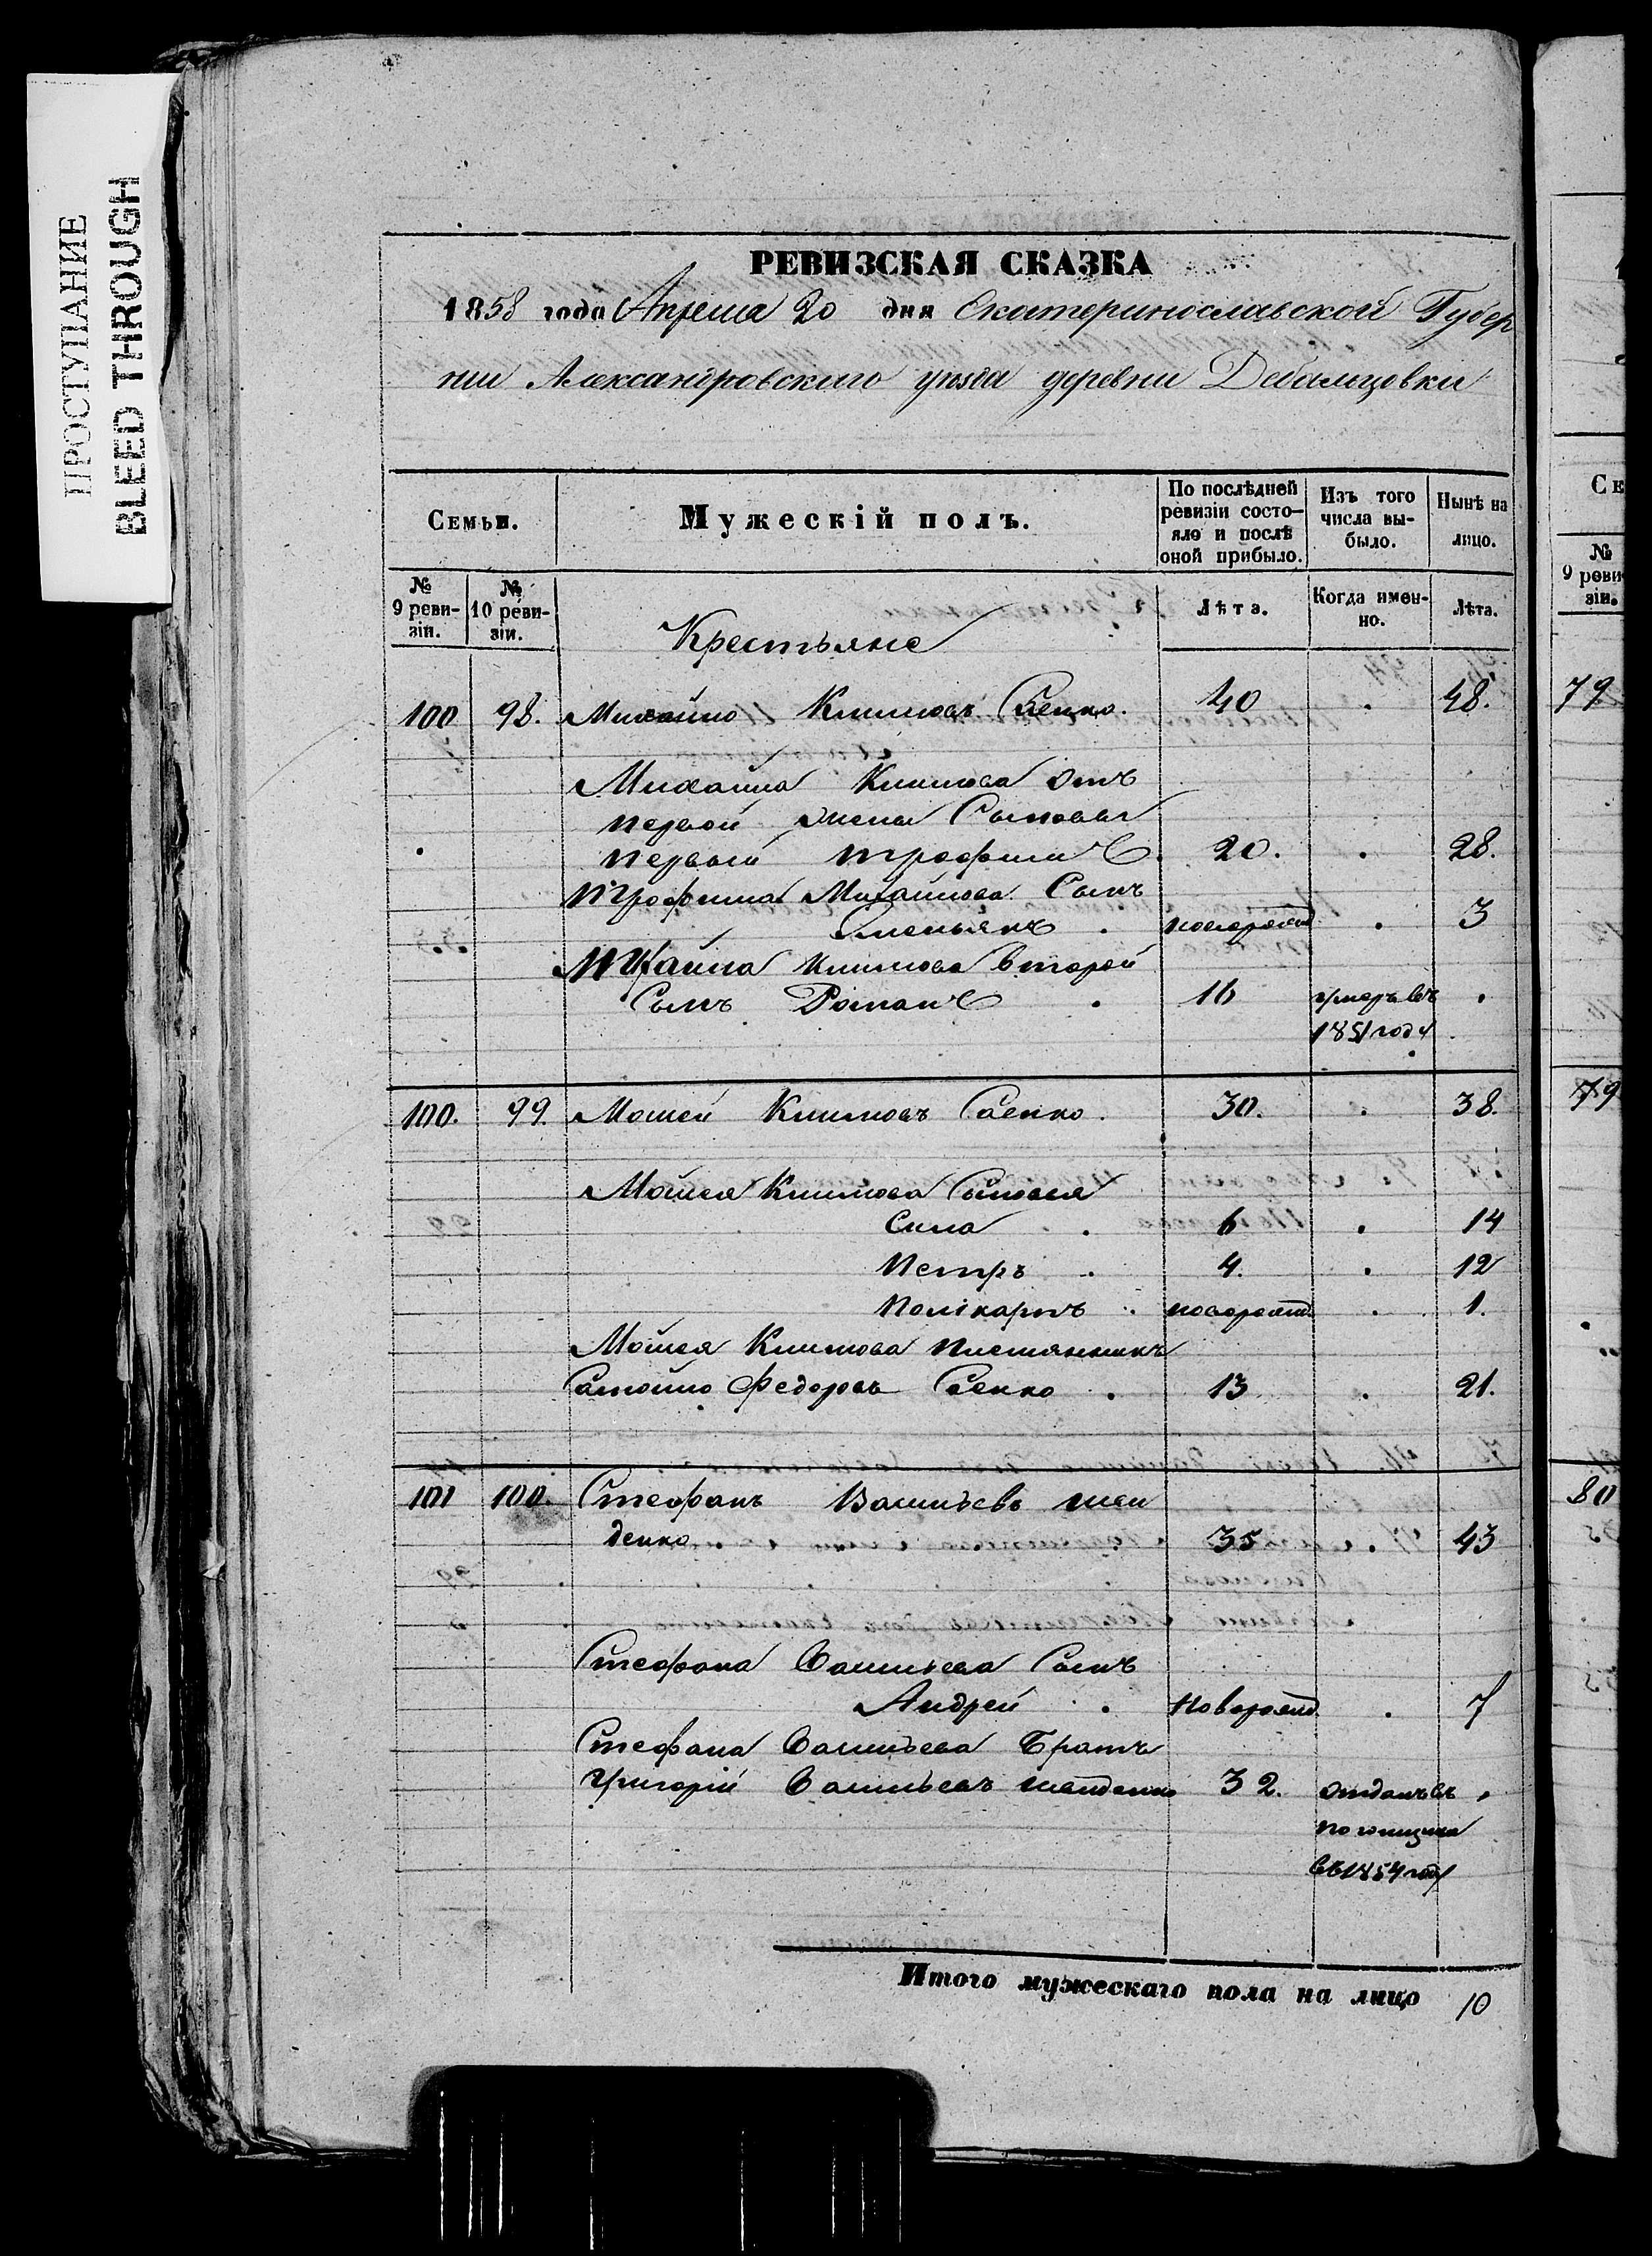 ПРОСТУПАНИЕ
BLEED THROUGH
РЕВИЗСКАЯ СКАЗКА
1858 года Апреля 20 дня Екатеринославской Губер
нии Александровскаго уезда деревни Дебальцовки
Семьи.
Мужескій полъ.
По послѣдней ревизіи состо-яло и послѣ оной прибыло.
Изъ того числа вы-было.
Нынѣ на лицо.
№ 9 реви-зіи.
№ 10 реви-зіи.
Лѣта.
Когда имен-но.
Лѣта.
Крестьяне
100 98. Михайло Климовъ Саенко. 40 48.
Михайла Климова отъ
первой жены Сыновья
первый Трофимъ 20. 28.
Трофима Михайлова Сынъ
новорожд 3
Михайла Климова второй
Сынъ Романъ 16 умеръ въ
1851 году
100. 99. Мойсей Климовъ Саенко. 30. 38.
Мойсея Климова Сыновья
Сила 6 14
Петръ 4. 12
Поликарпъ новорожд 1.
Мойсея Климова племянникъ
Самойло Федоровъ Саенко 13 21.
101 100. Стефанъ Васильевъ
денко 35 43
Стефана Васильева Сынъ
Андрей новорожд 7
Стефана Васильева Братъ
Григорій Васильевъ 32. отданъ въ
погонщики
въ 1854 году
Итого мужескаго пола на лицо 10
Се
№ 9 реви
зіи.
79
79
80